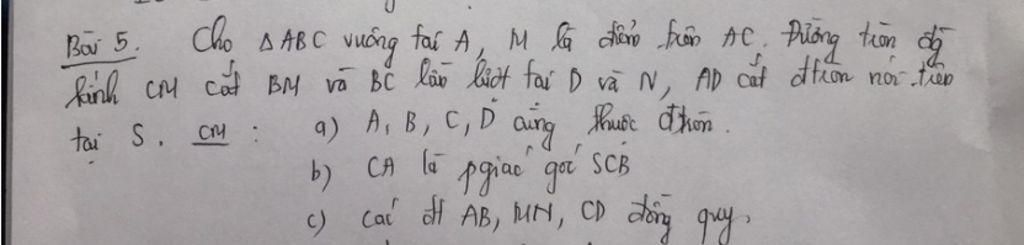 Bài 5. Cho ΔABC vuông tại A, M là điểm trên AC. Đường tròn đg
kính CM cắt BM và BC lần lượt tại D và N, AD cắt đtròn nói trên
tại S. CM :
a) A, B, C, D cùng thuộc đtròn.
b) CA là pgiác góc SCB
c) Các đt AB, MN, CD đồng quy.